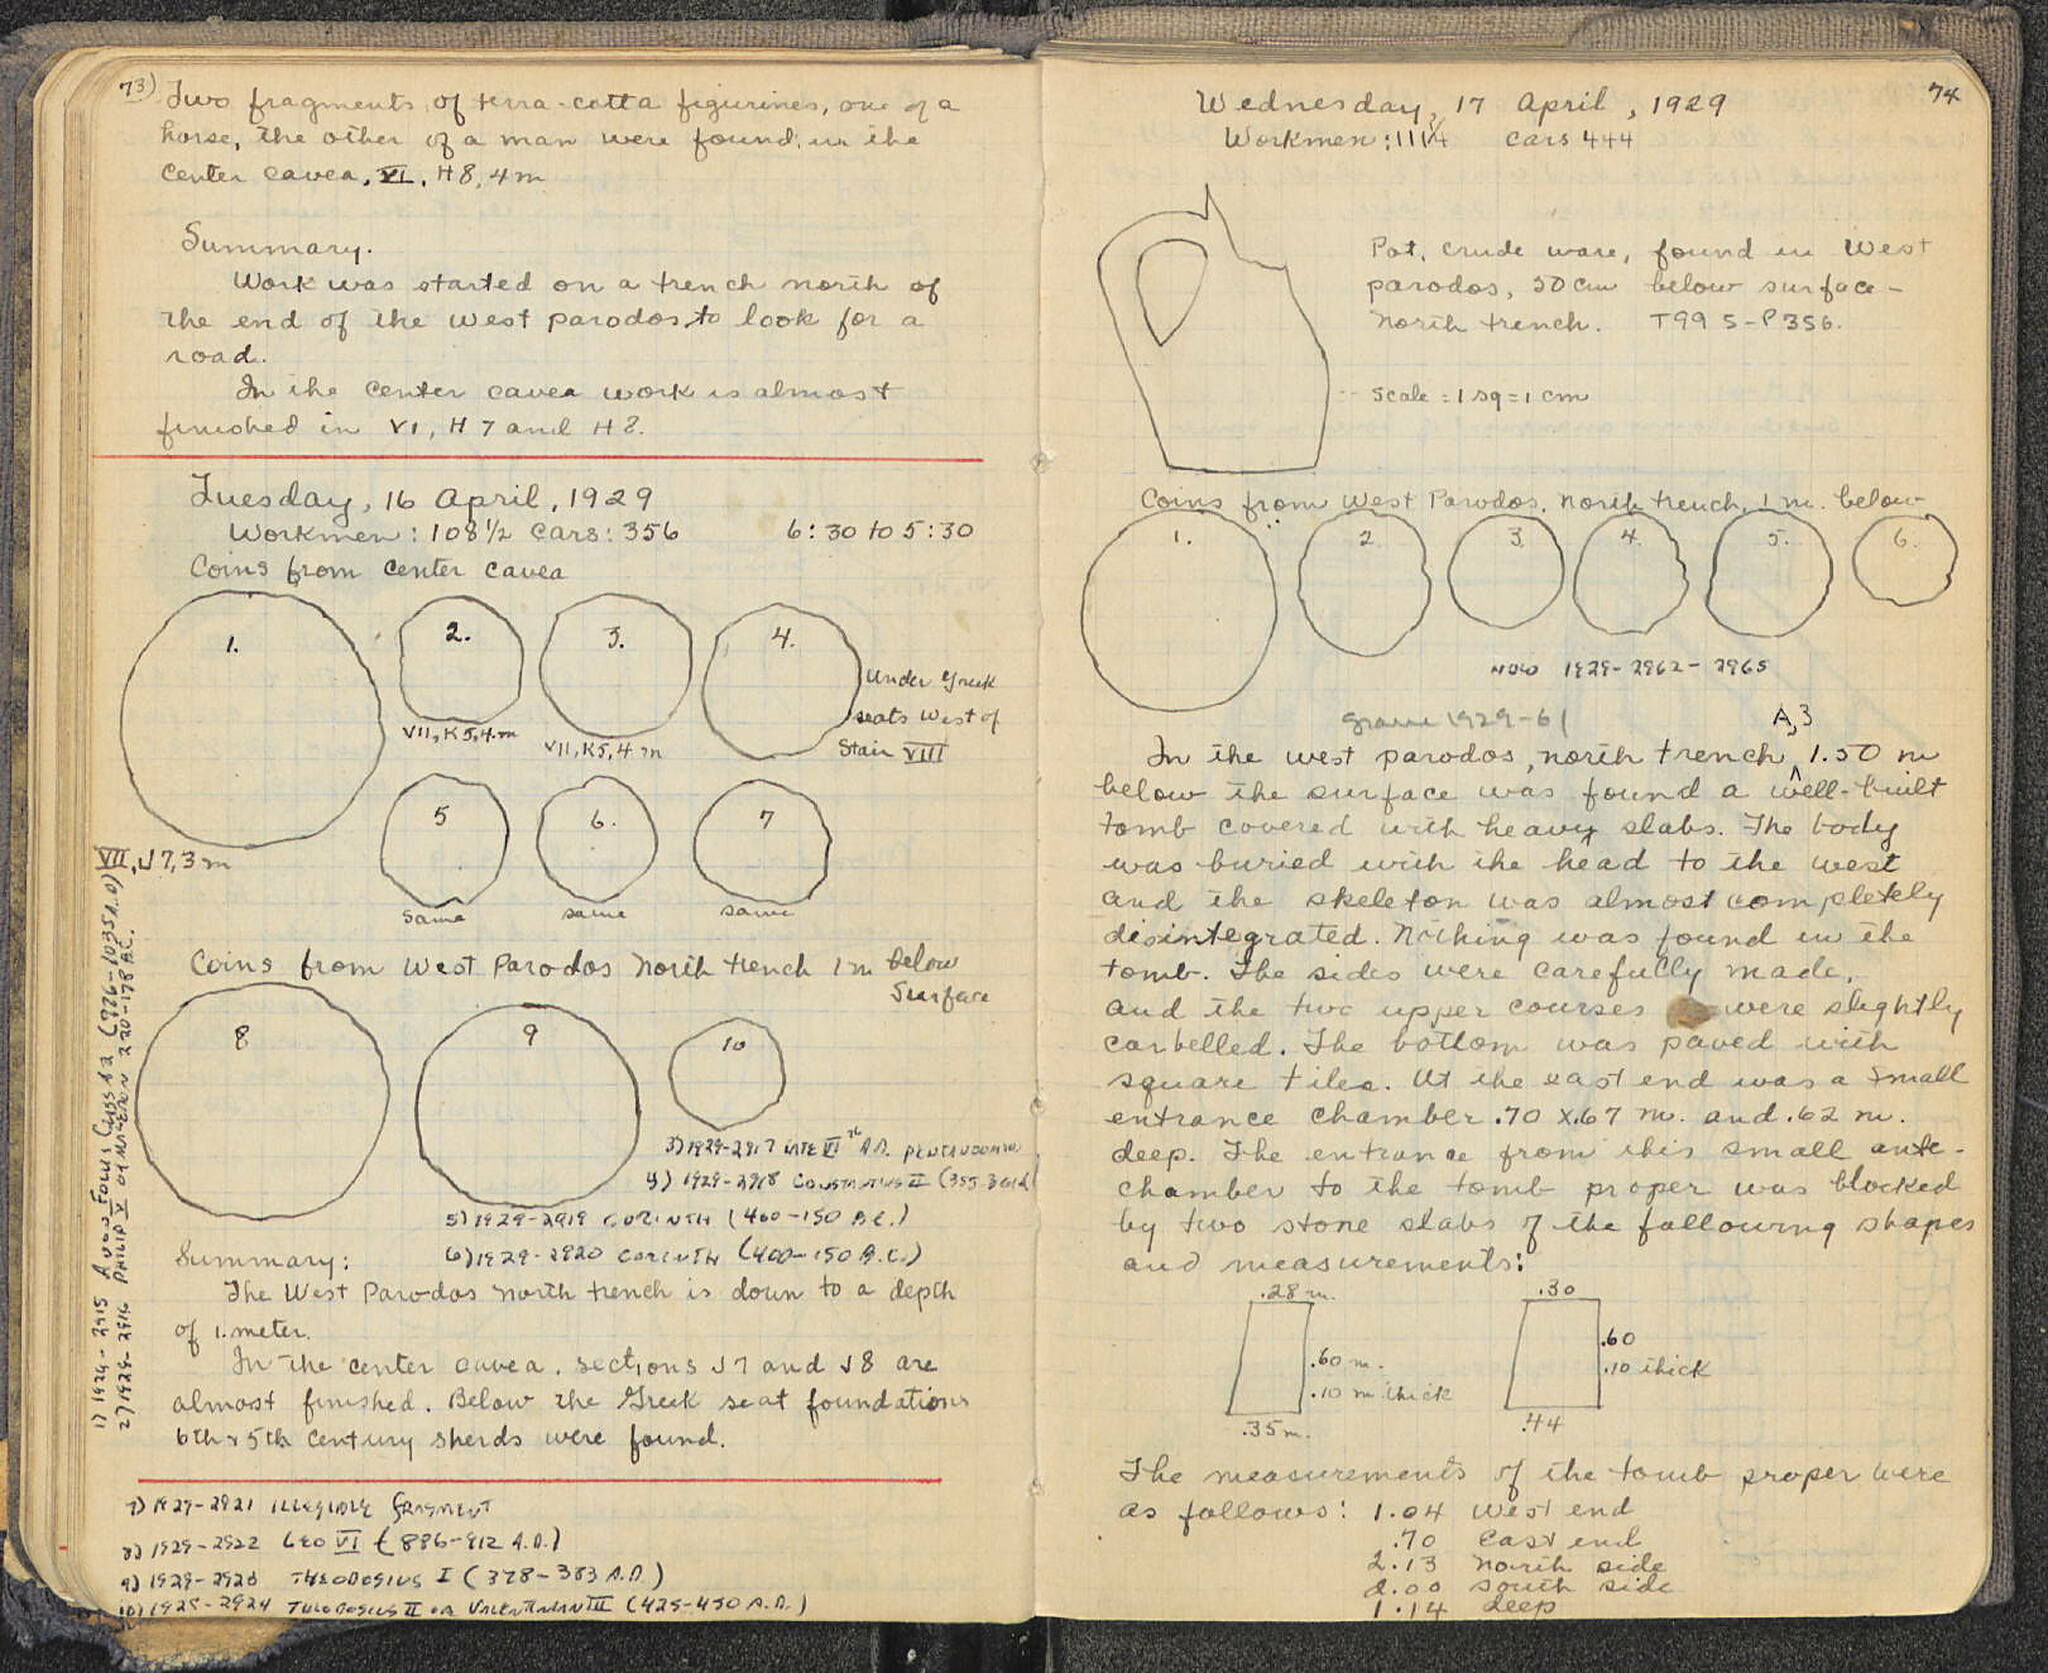 73)
Two fragments of terra-cotta figurines, one of a
horse, the other of a man were found in the
center cavea, VI, H8, 4m
Summary.
Work was started on a trench north of
the end of the west parodos to look for a
road.
In the center cavea work is almost
finished in VI, H7 and H8.
Tuesday, 16 April, 1929
Workmen: 108½ Cars: 356 6:30 to 5:30
Coins from center cavea
1.
2.
3.
4.
Under Greek
seats West of
Stair VIII
VII, K5, 4m
VII, K5, 4m
VII, J7, 3m
5
6.
7
same
same
same
Coins from West Parodos North trench 1m below
Surface
8
9
10
3) 1929-2917 LATE VI th A.D.
4) 1929-2918 CONSTANTIUS II
5) 1929-2919 CORINTH (400-150 B.C.)
6) 1929-2920 CORINTH (400-150 B.C.)
Summary:
The West Parodos north trench is down to a depth
of 1. meter.
In the center cavea, sections J7 and J8 are
almost finished. Below the Greek seat foundations
6th & 5th century sherds were found.
1) 1929-2915 ANON FOLLIS CLASS A2 (976-1035 A.D)
2) 1929-2916 PHILIP V 220-178 B.C.
7) 1929-2921 ILLEGIBLE FRAGMENT
8) 1929-2922 LEO VI (886-912 A.D.)
9) 1929-2923 THEODOSIUS I (378-383 A.D.)
10) 1929-2924 THEODOSIUS II OR VALENTINIAN III (425-450 A.D.)
74
Wednesday, 17 April, 1929
Workmen: Cars 444
Pot, crude ware, found in West
parodos, 50 cm below surface-
North trench. T995-P356.
Scale = 1 sq = 1 cm
Coins from West Parodos, north trench, 1 m. below
1.
2.
3.
4.
5.
6.
NOW 1929-2962-2965
Grave 1929-61
A,3
In the west parodos, north trench, 1.50 m
below the surface was found a well-built
tomb covered with heavy slabs. The body
was buried with the head to the west
and the skeleton was almost completely
disintegrated. Nothing was found in the
tomb. The sides were carefully made,
and the two upper courses were slightly
corbelled. The bottom was paved with
square tiles. At the east end was a small
entrance chamber .70 x .67 m. and .62 m.
deep. The entrance from this small ante-
chamber to the tomb proper was blocked
by two stone slabs of the following shapes
and measurements:
.28 m.
.60 m.
.10 m. thick
.35 m.
.30
.60
.10 thick
.44
The measurements of the tomb proper were
as follows: 1.04 west end
.70 east end
2.13 north side
2.00 south side
1.14 deep